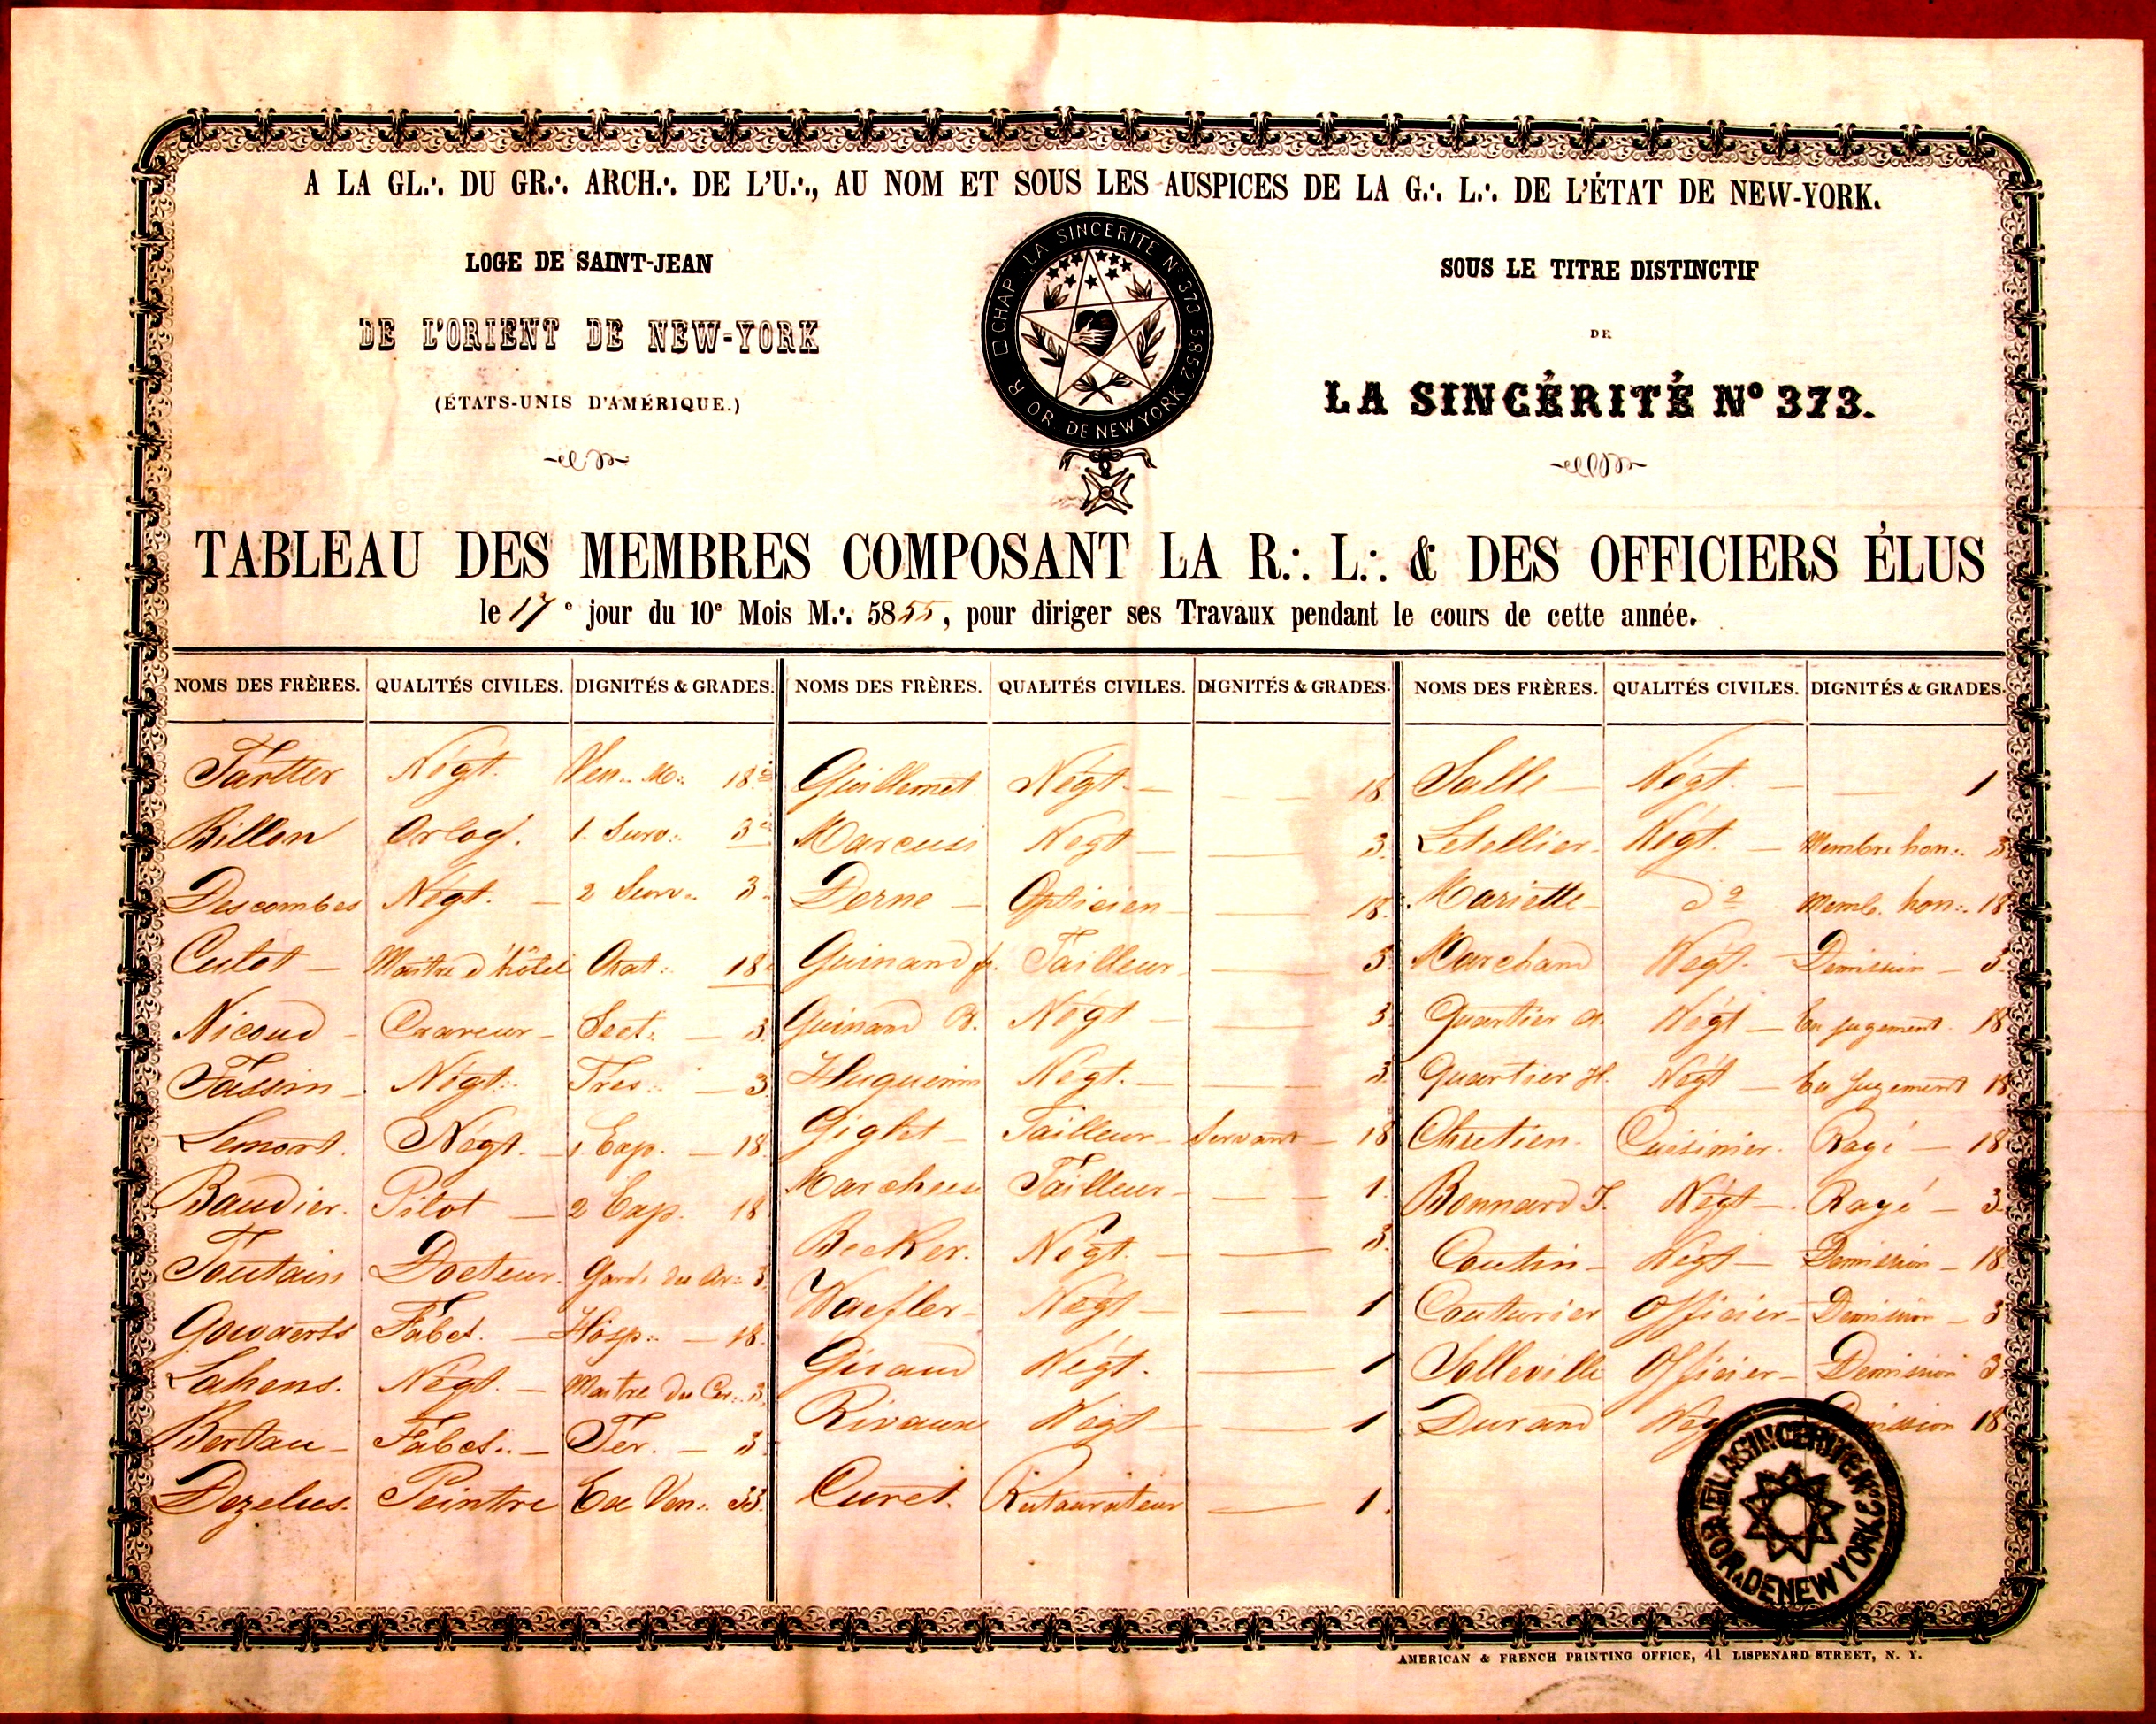 A LA GL.·. DU GR.·. ARCH.·. DE L'U.·., AU NOM ET SOUS LES AUSPICES DE LA G.·. L.·. DE L'ÉTAT DE NEW-YORK.
LOGE DE SAINT-JEAN
DE L'ORIENT DE NEW-YORK
(ÉTATS-UNIS D'AMÉRIQUE.)
R □ CHAP. LA SINCERITE Nº 373 5852
OR. DE NEW YORK
SOUS LE TITRE DISTINCTIF
DE
LA SINCÉRITÉ Nº 373.
TABLEAU DES MEMBRES COMPOSANT LA R.·. L.·. & DES OFFICIERS ÉLUS
le 17e jour du 10e Mois M.·. 5855, pour diriger ses Travaux pendant le cours de cette année.
NOMS DES FRÈRES. QUALITÉS CIVILES. DIGNITÉS & GRADES.
Négt. Ven.. M.. 18e
Billon Orlog. 1. Surv.. 3e
Descombes Négt. — 2 Surv.. 3.
Cutot — Maitre d'hôtel Orat. 18
Nicoud — Graveur — Sect. — 3
Négt. Tres. — 3
Lemort. Négt. — 1 Exp. — 18
Baudier. Pilot — 2 Exp. 18
Toutain Docteur. Garde des Ar.. 3
Govaerts Fabct. — Hosp.. — 18.
Lahens. Négt. — Maitre du Cer.. 3
Bertau — Fabct.. — Ter. — 3
Dezelus. Peintre Ex Ven.. 33.
NOMS DES FRÈRES. QUALITÉS CIVILES. DIGNITÉS & GRADES.
Guillemet Négt. — 18
Marcusi Négt — 3.
Derne — Opticien — 18.
Guinand f. Tailleur — 3.
Guinand B. Négt — 3.
Huguenin Négt. — 3.
Giglet — Tailleur — Servant — 18
Tailleur — 1.
Becker. Négt. — 3.
Waefler — Négt — 1
Giraud Négt. — 1
Négt — 1
Curet. Restaurateur — 1.
NOMS DES FRÈRES. QUALITÉS CIVILES. DIGNITÉS & GRADES.
Salle — Négt. — 1
Letellier. Négt. — Membre hon.. 3
Mariette — do Memb. hon.. 18
Marchand Négt. Demission — 3
Quartier A. Négt — En jugement. 18
Quartier H. Négt — En jugement 18
Chretien. Cuisinier. Rayé — 18
Bonnard J. Négt — Rayé — 3
Coutin — Négt — Demission — 18
Couturier Officier — Demission — 3
Solleville Officier — Demission 3
Durand Négt Demission 18
LA SINCERITE Nº 373
OR. DE NEW YORK
AMERICAN & FRENCH PRINTING OFFICE, 41 LISPENARD STREET, N. Y.